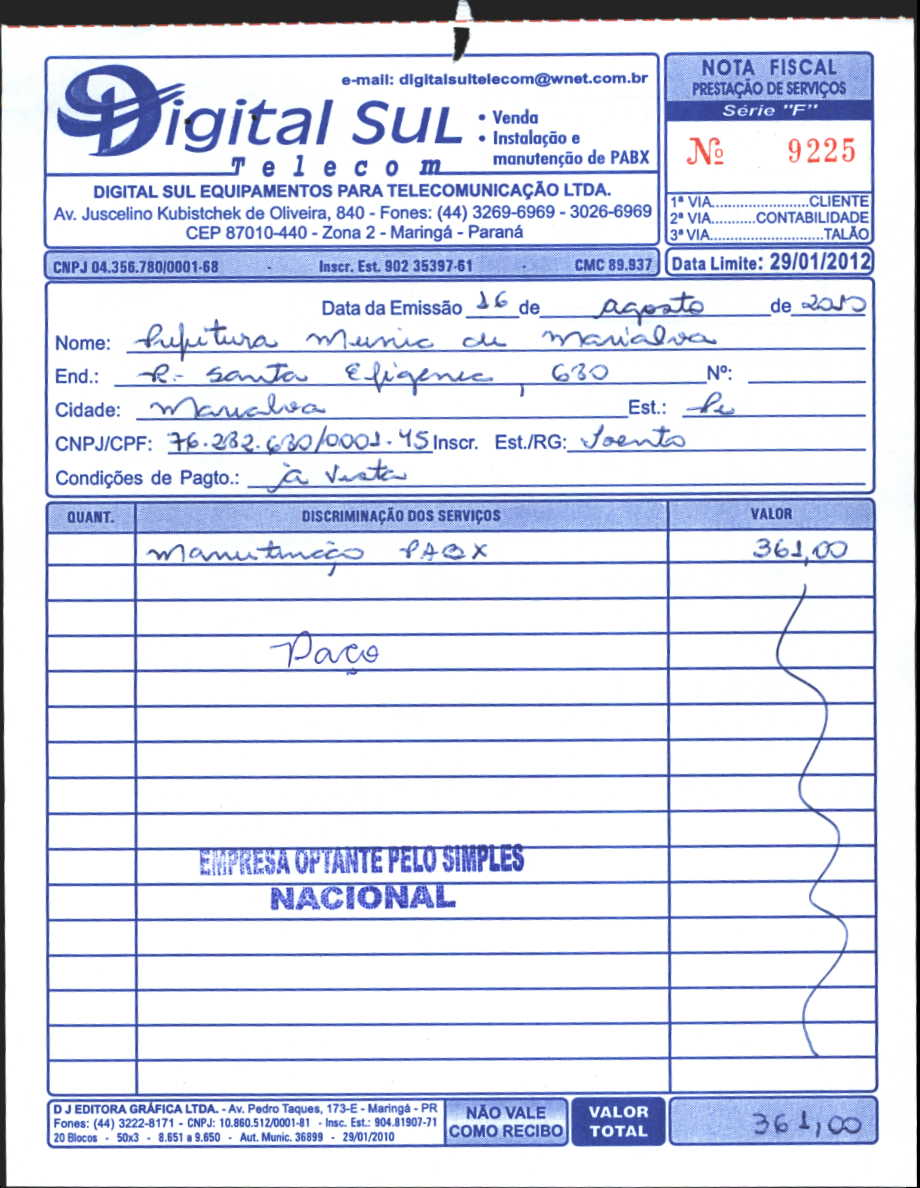 e-mail: digitalsultelecom@wnet.com.br
Digital Sul
Telecom
• Venda
• Instalação e
manutenção de PABX
DIGITAL SUL EQUIPAMENTOS PARA TELECOMUNICAÇÃO LTDA.
Av. Juscelino Kubistchek de Oliveira, 840 - Fones: (44) 3269-6969 - 3026-6969
CEP 87010-440 - Zona 2 - Maringá - Paraná
NOTA FISCAL
PRESTAÇÃO DE SERVIÇOS
Série "F"
Nº 9225
1ª VIA.....................CLIENTE
2ª VIA..........CONTABILIDADE
3ª VIA.........................TALÃO
CNPJ 04.356.780/0001-68 - Inscr. Est. 902 35397-61 - CMC 89.937
Data Limite: 29/01/2012
Data da Emissão 16 de agosto de 2010
Nome: Prefeitura Munic de Marialva
End.: R. Santa Efigenia, 630 Nº:
Cidade: Marialva Est.: Pr
CNPJ/CPF: 76.282.680/0001-45 Inscr. Est./RG: Isento
Condições de Pagto.: à Vista
QUANT. DISCRIMINAÇÃO DOS SERVIÇOS VALOR
Manutenção PABX 361,00
Paço
EMPRESA OPTANTE PELO SIMPLES
NACIONAL
D J EDITORA GRÁFICA LTDA. - Av. Pedro Taques, 173-E - Maringá - PR
Fones: (44) 3222-8171 - CNPJ: 10.860.512/0001-81 - Insc. Est.: 904.81907-71
20 Blocos - 50x3 - 8.651 a 9.650 - Aut. Munic. 36899 - 29/01/2010
NÃO VALE
COMO RECIBO
VALOR
TOTAL
361,00